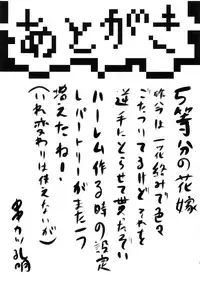 あとがき
5等分の花嫁
昨今は一花絡みで色々
ごたついてるけどそれを
逆手にとらせて貰ったぞい
ハーレム作る時の設定
レパートリーがまた1つ
増えたねー!
(いれ変わりは使えないが)